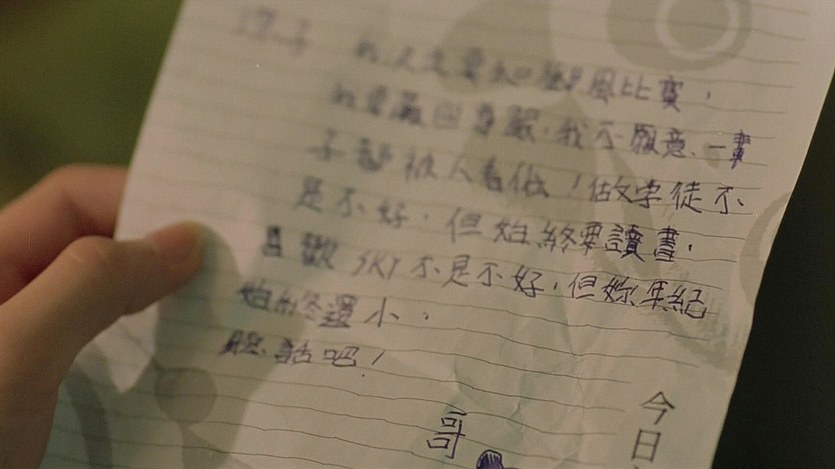 風比賽，
我要贏回尊嚴，我不願意，一輩
子都被人看低！做学徒不
是不好，但始終要讀書，
喜歡 SKY 不是不好，但妳年紀
始終還小，
聽話吧！
哥
今日